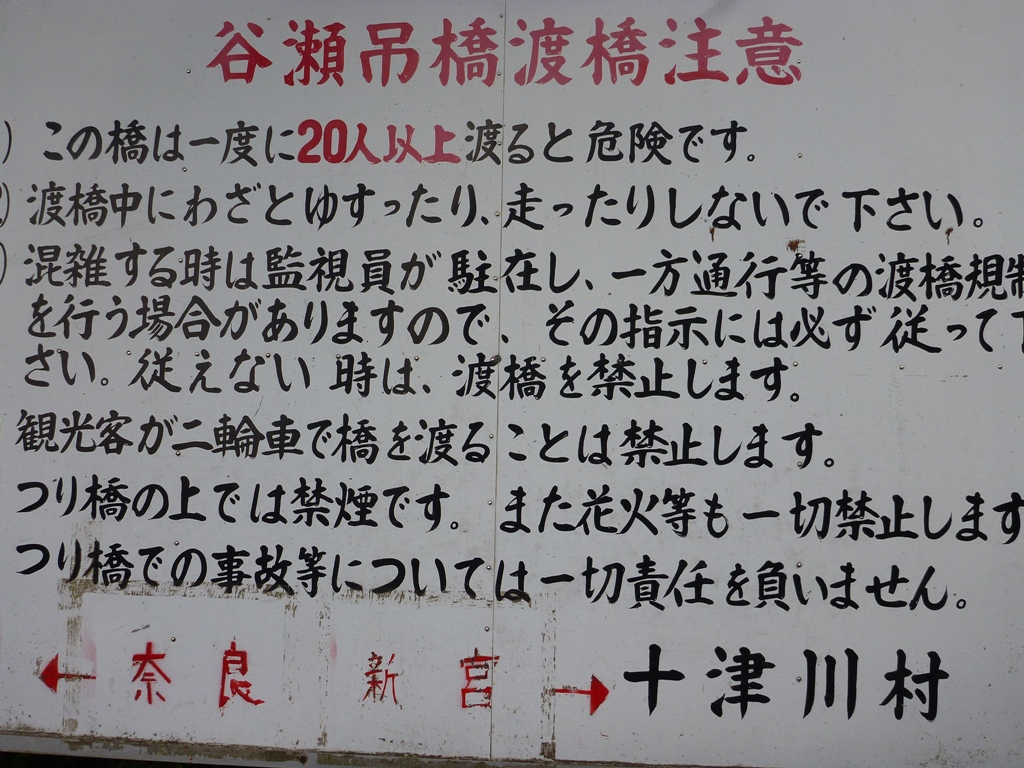 谷瀬吊橋渡橋注意
) この橋は一度に20人以上渡ると危険です。
) 渡橋中にわざとゆすったり、走ったりしないで下さい。
) 混雑する時は監視員が駐在し、一方通行等の渡橋規制
を行う場合がありますので、その指示には必ず従って下
さい。従えない時は、渡橋を禁止します。
観光客が二輪車で橋を渡ることは禁止します。
つり橋の上では禁煙です。また花火等も一切禁止します
つり橋での事故等については一切責任を負いません。
← 奈良 新宮 → 十津川村